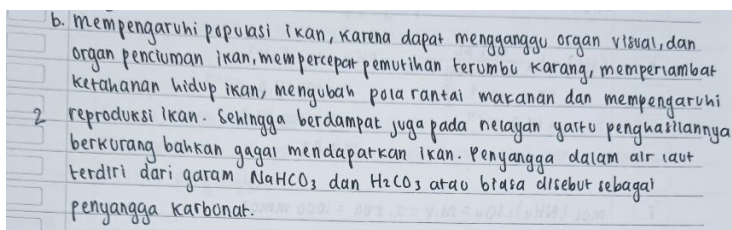 b. mempengaruhi populasi ikan, karena dapat mengganggu organ visual, dan
organ penciuman ikan, mempercepat pemutihan terumbu karang, memperlambat
ketahanan hidup ikan, mengubah pola rantai makanan dan mempengaruhi
2 reproduksi ikan. Sehingga berdampak juga pada nelayan yaitu penghasilannya
berkurang bahkan gagal mendapatkan ikan. Penyangga dalam air laut
terdiri dari garam NaHCO3 dan H2CO3 atau biasa disebut sebagai
penyangga karbonat.